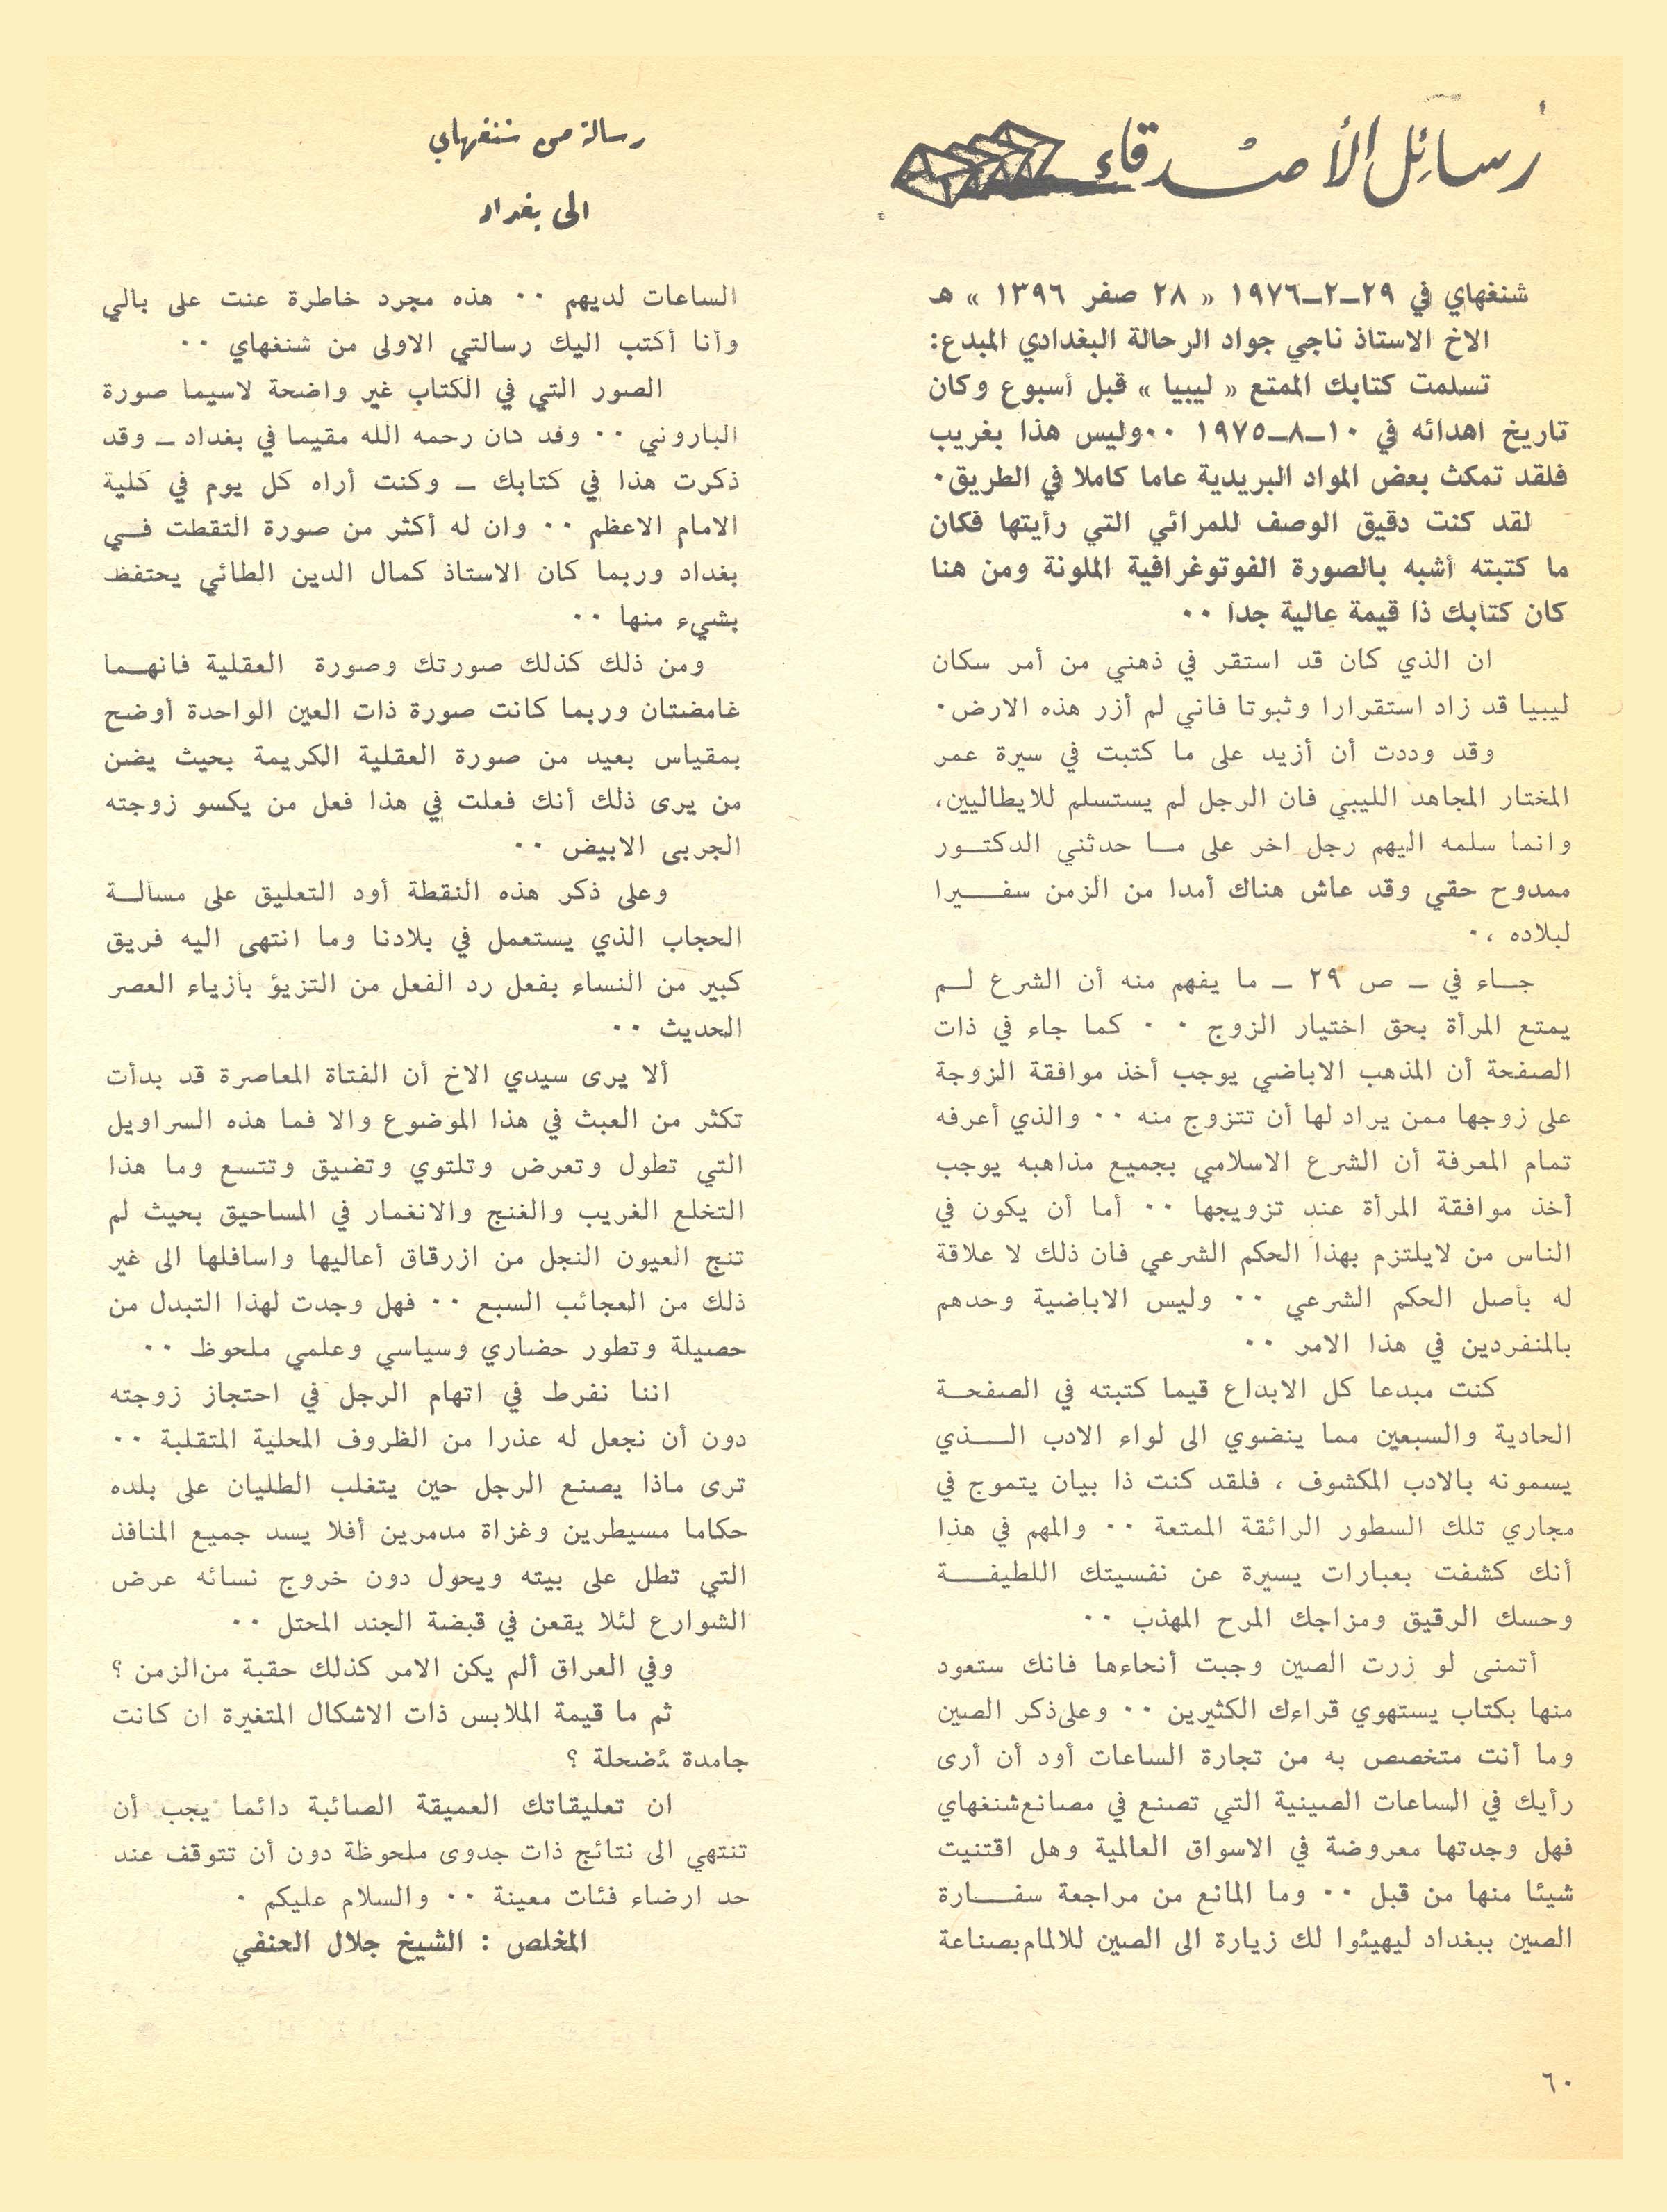 رسائل الأصدقاء
رسالة من شنغهاي
الى بغداد
شنغهاي في ٢٩ــ٢ــ١٩٧٦ « ٢٨ صفر ١٣٩٦ » هـ
الاخ الاستاذ ناجي جواد الرحالة البغدادي المبدع:
تسلمت كتابك الممتع « ليبيا » قبل أسبوع وكان
تاريخ اهدائه في ١٠ــ٨ــ١٩٧٥ ٠٠وليس هذا بغريب
فلقد تمكث بعض المواد البريدية عاما كاملا في الطريق٠
لقد كنت دقيق الوصف للمرائي التي رأيتها فكان
ما كتبته أشبه بالصورة الفوتوغرافية الملونة ومن هنا
كان كتابك ذا قيمة عالية جدا ٠٠
ان الذي كان قد استقر في ذهني من أمر سكان
ليبيا قد زاد استقرارا وثبوتا فاني لم أزر هذه الارض٠
وقد وددت أن أزيد على ما كتبت في سيرة عمر
المختار المجاهد الليبي فان الرجل لم يستسلم للايطاليين،
وانما سلمه اليهم رجل اخر على مــا حدثني الدكتــور
ممدوح حقي وقد عاش هناك أمدا من الزمن سفــيرا
لبلاده ،٠
جــاء في ــ ص ٢٩ ــ ما يفهم منه أن الشرع لــم
يمتع المرأة بحق اختيار الزوج ٠ ٠ كما جاء في ذات
الصفحة أن المذهب الاباضي يوجب أخذ موافقة الزوجة
على زوجها ممن يراد لها أن تتزوج منه ٠٠ والذي أعرفه
تمام المعرفة أن الشرع الاسلامي بجميع مذاهبه يوجب
أخذ موافقة المرأة عند تزويجها ٠٠ أما أن يكون في
الناس من لايلتزم بهذا الحكم الشرعي فان ذلك لا علاقة
له بأصل الحكم الشرعي ٠٠ وليس الاباضية وحدهم
بالمنفردين في هذا الامر ٠٠
كنت مبدعا كل الابداع قيما كتبته في الصفحــة
الحادية والسبعين مما ينضوي الى لواء الادب الــذي
يسمونه بالادب المكشوف ، فلقد كنت ذا بيان يتموج في
مجاري تلك السطور الرائقة الممتعة ٠٠ والمهم في هذا
أنك كشفت بعبارات يسيرة عن نفسيتك اللطيفــة
وحسك الرقيق ومزاجك المرح المهذب ٠٠
أتمنى لو زرت الصين وجبت أنحاءها فانك ستعود
منها بكتاب يستهوي قراءك الكثيرين ٠٠ وعلى ذكر الصين
وما أنت متخصص به من تجارة الساعات أود أن أرى
رأيك في الساعات الصينية التي تصنع في مصانع شنغهاي
فهل وجدتها معروضة في الاسواق العالمية وهل اقتنيت
شيئا منها من قبل ٠٠ وما المانع من مراجعة سفــارة
الصين ببغداد ليهيئوا لك زيارة الى الصين للالمام بصناعة
الساعات لديهم ٠٠ هذه مجرد خاطرة عنت على بالي
وأنا أكتب اليك رسالتي الاولى من شنغهاي ٠٠
الصور التي في الكتاب غير واضحة لاسيما صورة
الباروني ٠٠ وقد كان رحمه الله مقيما في بغداد ــ وقد
ذكرت هذا في كتابك ــ وكنت أراه كل يوم في كلية
الامام الاعظم ٠٠ وان له أكثر من صورة التقطت فــي
بغداد وربما كان الاستاذ كمال الدين الطائي يحتفظ
بشيء منها ٠٠
ومن ذلك كذلك صورتك وصورة العقلية فانهــما
غامضتان وربما كانت صورة ذات العين الواحدة أوضح
بمقياس بعيد من صورة العقلية الكريمة بحيث يضن
من يرى ذلك أنك فعلت في هذا فعل من يكسو زوجته
الجربى الابيض ٠٠
وعلى ذكر هذه النقطة أود التعليق على مسألــة
الحجاب الذي يستعمل في بلادنا وما انتهى اليه فريق
كبير من النساء بفعل رد الفعل من التزيؤ بأزياء العصر
الحديث ٠٠
ألا يرى سيدي الاخ أن الفتاة المعاصرة قد بدأت
تكثر من العبث في هذا الموضوع والا فما هذه السراويل
التي تطول وتعرض وتلتوي وتضيق وتتسع وما هذا
التخلع الغريب والغنج والانغمار في المساحيق بحيث لم
تنج العيون النجل من ازرقاق أعاليها واسافلها الى غير
ذلك من العجائب السبع ٠٠ فهل وجدت لهذا التبدل من
حصيلة وتطور حضاري وسياسي وعلمي ملحوظ ٠٠
اننا نفرط في اتهام الرجل في احتجاز زوجته
دون أن نجعل له عذرا من الظروف المحلية المتقلبة ٠٠
ترى ماذا يصنع الرجل حين يتغلب الطليان على بلده
حكاما مسيطرين وغزاة مدمرين أفلا يسد جميع المنافذ
التي تطل على بيته ويحول دون خروج نسائه عرض
الشوارع لئلا يقعن في قبضة الجند المحتل ٠٠
وفي العراق ألم يكن الامر كذلك حقبة من الزمن ؟
ثم ما قيمة الملابس ذات الاشكال المتغيرة ان كانت
جامدة ئضحلة ؟
ان تعليقاتك العميقة الصائبة دائما يجب أن
تنتهي الى نتائج ذات جدوى ملحوظة دون أن تتوقف عند
حد ارضاء فئات معينة ٠٠ والسلام عليكم ٠
المخلص : الشيخ جلال الحنفي
٦٠